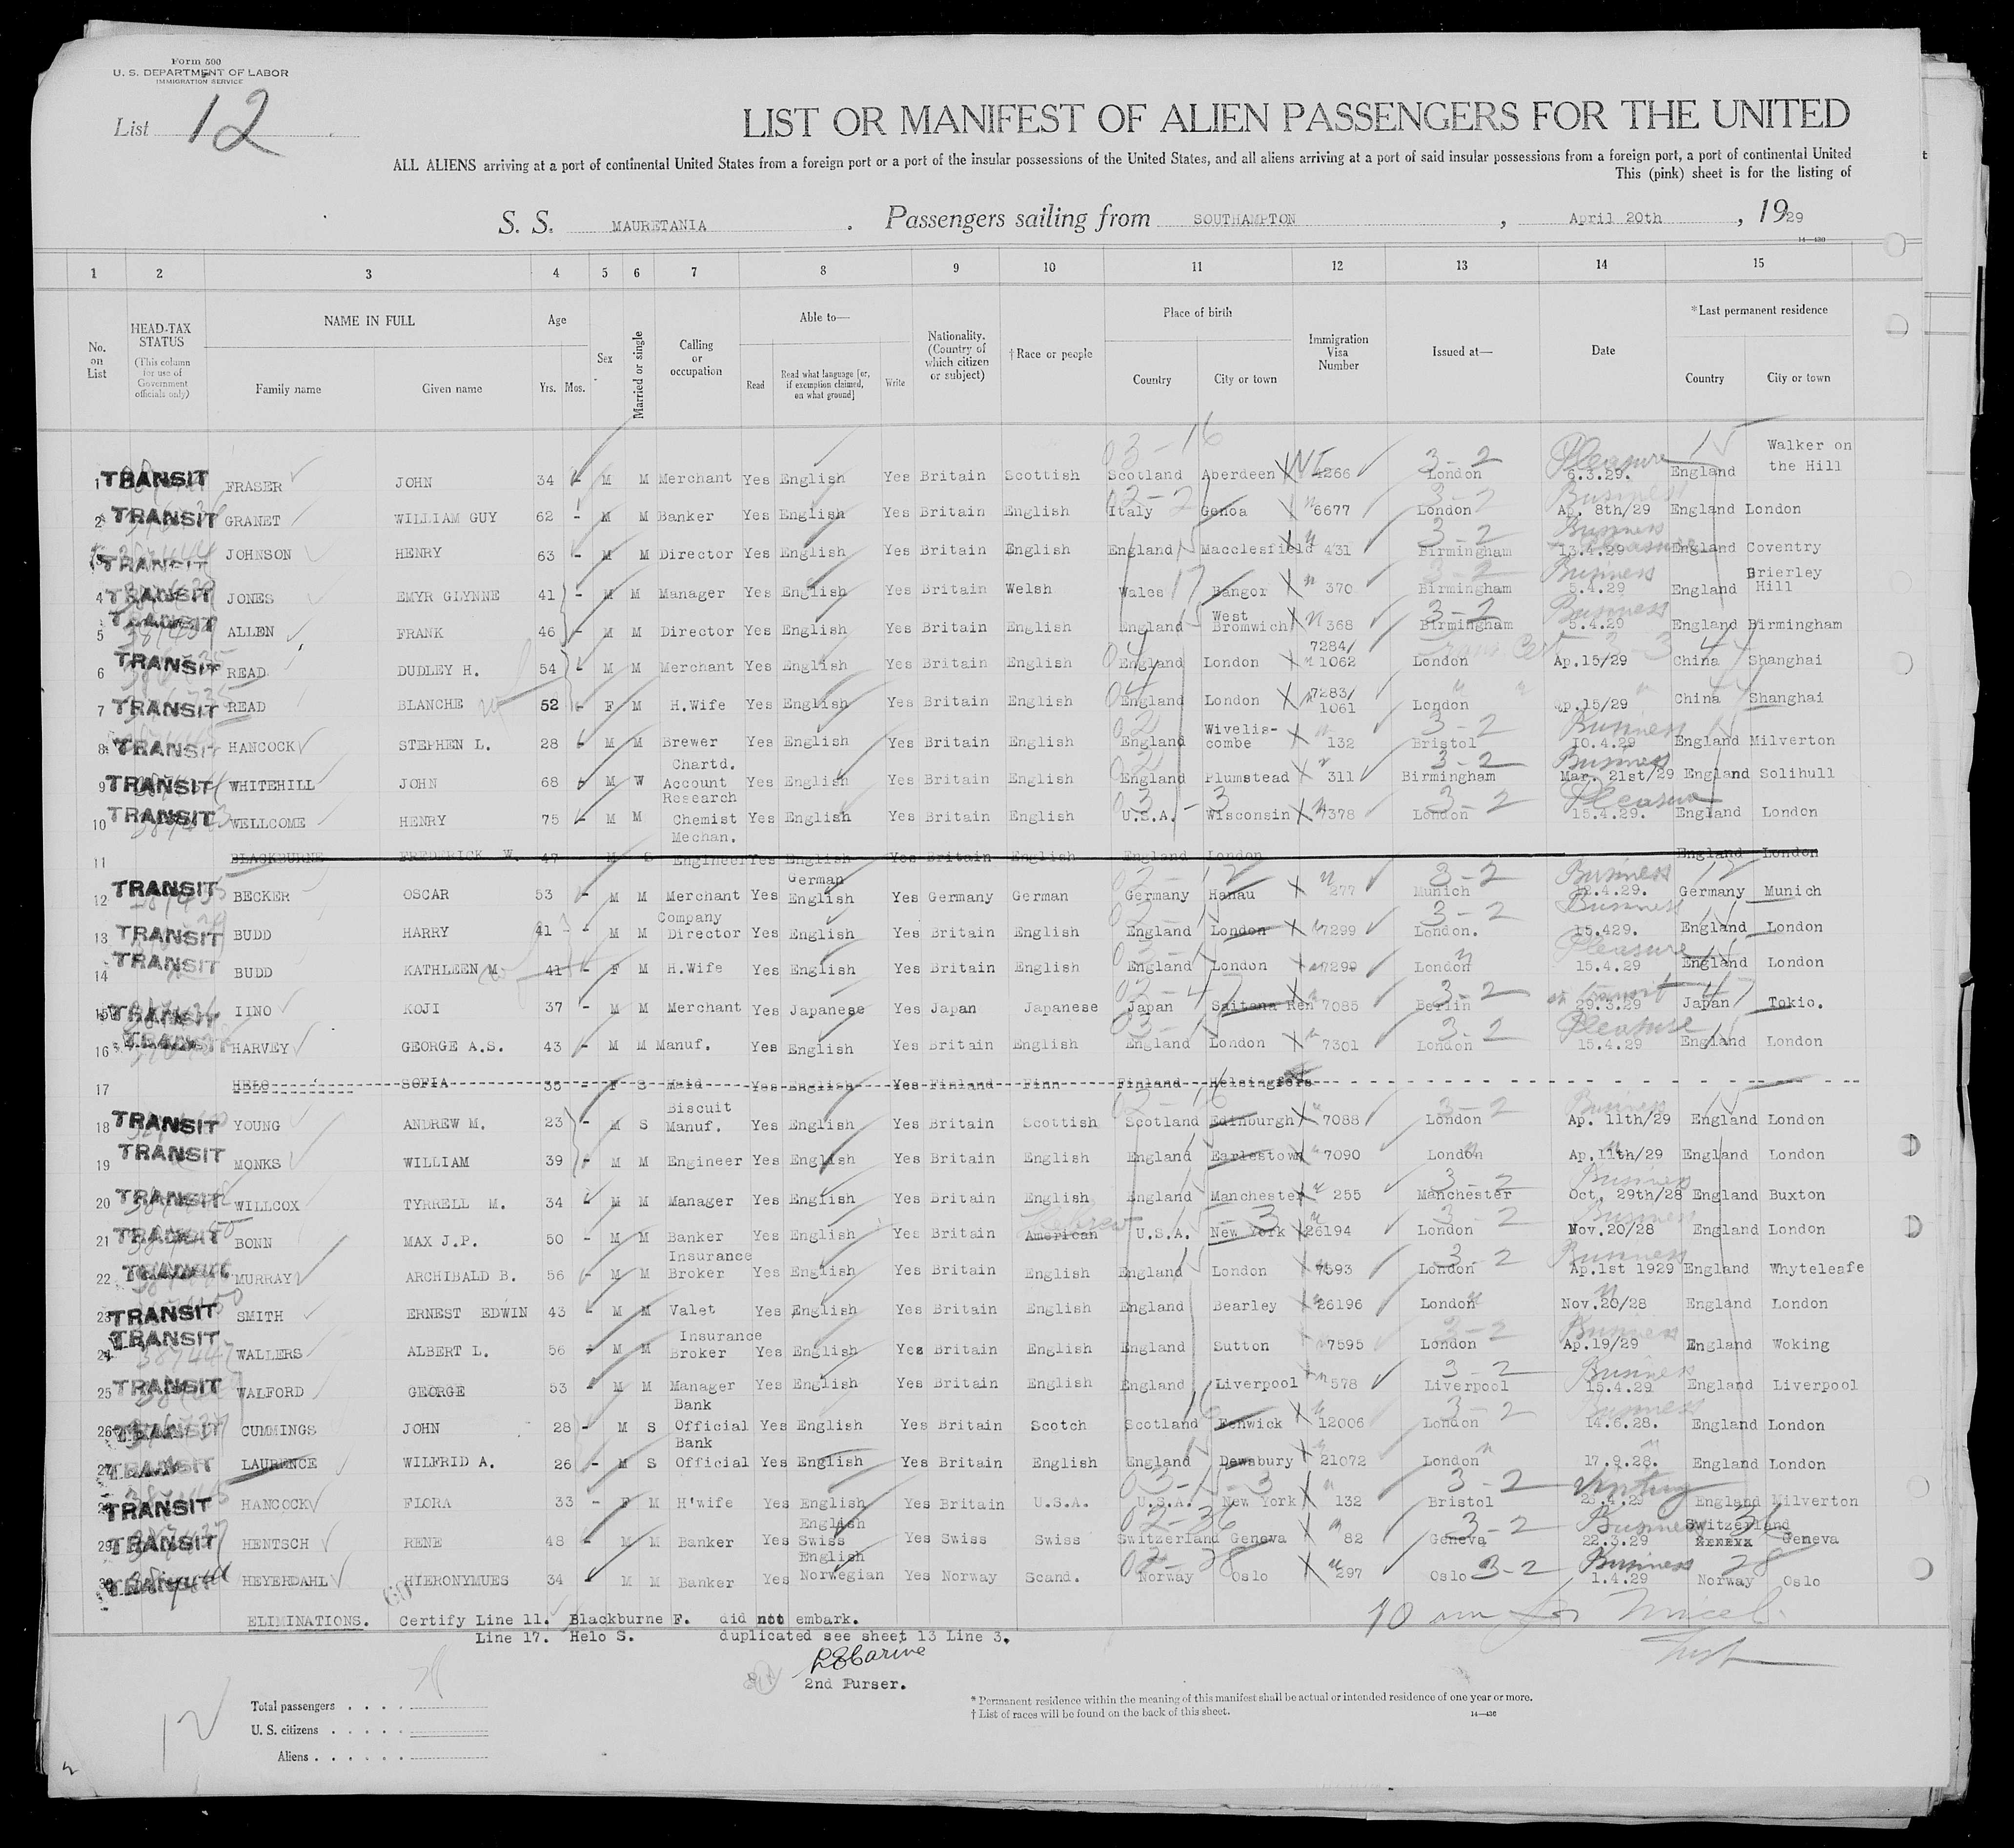 Form 500
U. S. DEPARTMENT OF LABOR
IMMIGRATION SERVICE
List 12
LIST OR MANIFEST OF ALIEN PASSENGERS FOR THE UNITED
ALL ALIENS arriving at a port of continental United States from a foreign port or a port of the insular possessions of the United States, and all aliens arriving at a port of said insular possessions from a foreign port, a port of continental United
This (pink) sheet is for the listing of
S. S. MAURETANIA . Passengers sailing from SOUTHAMPTON , April 20th , 1929
14—430
1 2 3 4 5 6 7 8 9 10 11 12 13 14 15
No. on List HEAD-TAX STATUS (This column for use of Government officials only) NAME IN FULL Family name Given name Age Yrs. Mos. Sex Married or single Calling or occupation Able to— Read Read what language [or, if exemption claimed, on what ground] Write Nationality. (Country of which citizen or subject) †Race or people Place of birth Country City or town Immigration Visa Number Issued at— Date *Last permanent residence Country City or town
1 TRANSIT FRASER JOHN 34 M M Merchant Yes English Yes Britain Scottish Scotland Aberdeen 4266 London 3-2 6.3.29. Pleasure England Walker on the Hill
2 TRANSIT GRANET WILLIAM GUY 62 - M M Banker Yes English Yes Britain English Italy Genoa 6677 London 3-2 Ap. 8th/29 Business England London
3 TRANSIT JOHNSON HENRY 63 - M M Director Yes English Yes Britain English England Macclesfield 431 Birmingham 3-2 13.4.29 Business England Coventry
4 TRANSIT JONES EMYR GLYNNE 41 - M M Manager Yes English Yes Britain Welsh Wales Bangor 370 Birmingham 3-2 5.4.29 Business England Brierley Hill
5 TRANSIT ALLEN FRANK 46 - M M Director Yes English Yes Britain English England West Bromwich 368 Birmingham 3-2 5.4.29 Business England Birmingham
6 TRANSIT READ DUDLEY H. 54 - M M Merchant Yes English Yes Britain English England London 7284/1062 London Ap.15/29 China Shanghai
7 TRANSIT READ BLANCHE 52 - F M H.Wife Yes English Yes Britain English England London 7283/1061 London Ap.15/29 China Shanghai
8 TRANSIT HANCOCK STEPHEN L. 28 - M M Brewer Yes English Yes Britain English England Wivelis-combe 132 Bristol 3-2 10.4.29 Business England Milverton
9 TRANSIT WHITEHILL JOHN 68 M W Chartd. Account Yes English Yes Britain English England Plumstead 311 Birmingham 3-2 Mar. 21st/29 Business England Solihull
10 TRANSIT WELLCOME HENRY 75 - M M Research Chemist Yes English Yes Britain English U.S.A. Wisconsin 7378 London 3-2 15.4.29. Pleasure England London
11 BLACKBURNE FREDERICK W. 47 M S Mechan. Engineer Yes English Yes Britain English England London England London
12 TRANSIT BECKER OSCAR 53 - M M Merchant Yes German English Yes Germany German Germany Hanau 277 Munich 3-2 12.4.29. Business Germany Munich
13 TRANSIT BUDD HARRY 41 - M M Company Director Yes English Yes Britain English England London 7299 London. 3-2 15.429. Business England London
14 TRANSIT BUDD KATHLEEN M. 41 - F M H.Wife Yes English Yes Britain English England London 7299 London 15.4.29 Pleasure England London
15 TRANSIT IINO KOJI 37 - M M Merchant Yes Japanese Yes Japan Japanese Japan Saitana Ken 7085 Berlin 3-2 29.3.29 in transit Japan Tokio.
16 TRANSIT HARVEY GEORGE A.S. 43 - M M Manuf. Yes English Yes Britain English England London 7301 London 3-2 15.4.29 Pleasure England London
17 HELO SOFIA 35 - F S Maid Yes English Yes Finland Finn Finland Helsingfors
18 TRANSIT YOUNG ANDREW M. 23 - M S Biscuit Manuf. Yes English Yes Britain Scottish Scotland Edinburgh 7088 London 3-2 Ap. 11th/29 Business England London
19 TRANSIT MONKS WILLIAM 39 - M M Engineer Yes English Yes Britain English England Earlestown 7090 London Ap.11th/29 England London
20 TRANSIT WILLCOX TYRRELL M. 34 - M M Manager Yes English Yes Britain English England Manchester 255 Manchester 3-2 Oct. 29th/28 Business England Buxton
21 TRANSIT BONN MAX J.P. 50 - M M Banker Yes English Yes Britain American Hebrew U.S.A. New York 26194 London 3-2 Nov.20/28 Business England London
22 TRANSIT MURRAY ARCHIBALD B. 56 - M M Insurance Broker Yes English Yes Britain English England London 7593 London 3-2 Ap.1st 1929 Business England Whyteleafe
23 TRANSIT SMITH ERNEST EDWIN 43 - M M Valet Yes English Yes Britain English England Bearley 26196 London Nov.20/28 England London
24 TRANSIT WALLERS ALBERT L. 56 - M M Insurance Broker Yes English Yes Britain English England Sutton 7595 London 3-2 Ap.19/29 Business England Woking
25 TRANSIT WALFORD GEORGE 53 - M M Manager Yes English Yes Britain English England Liverpool 578 Liverpool 3-2 15.4.29 Business England Liverpool
26 TRANSIT CUMMINGS JOHN 28 - M S Bank Official Yes English Yes Britain Scotch Scotland Fenwick 12006 London 3-2 14.6.28. Business England London
27 TRANSIT LAURENCE WILFRID A. 26 - M S Bank Official Yes English Yes Britain English England Dewsbury 21072 London 17.9.28. England London
28 TRANSIT HANCOCK FLORA 33 - F M H'wife Yes English Yes Britain U.S.A. U.S.A. New York 132 Bristol 3-2 Visiting England Milverton
29 TRANSIT HENTSCH RENE 48 - M M Banker Yes English Swiss Yes Swiss Swiss Switzerland Geneva 82 Geneva 3-2 22.3.29 Business Switzerland Geneva
30 TRANSIT HEYERDAHL HIERONYMUES 34 - M M Banker Yes English Norwegian Yes Norway Scand. Norway Oslo 297 Oslo 3-2 1.4.29 Business Norway Oslo
ELIMINATIONS. Certify Line 11. Blackburne F. did not embark.
Line 17. Helo S. duplicated see sheet 13 Line 3.
2nd Purser.
Total passengers . . . .
U. S. citizens . . . . .
Aliens . . . . . .
12
* Permanent residence within the meaning of this manifest shall be actual or intended residence of one year or more.
† List of races will be found on the back of this sheet.
14—430